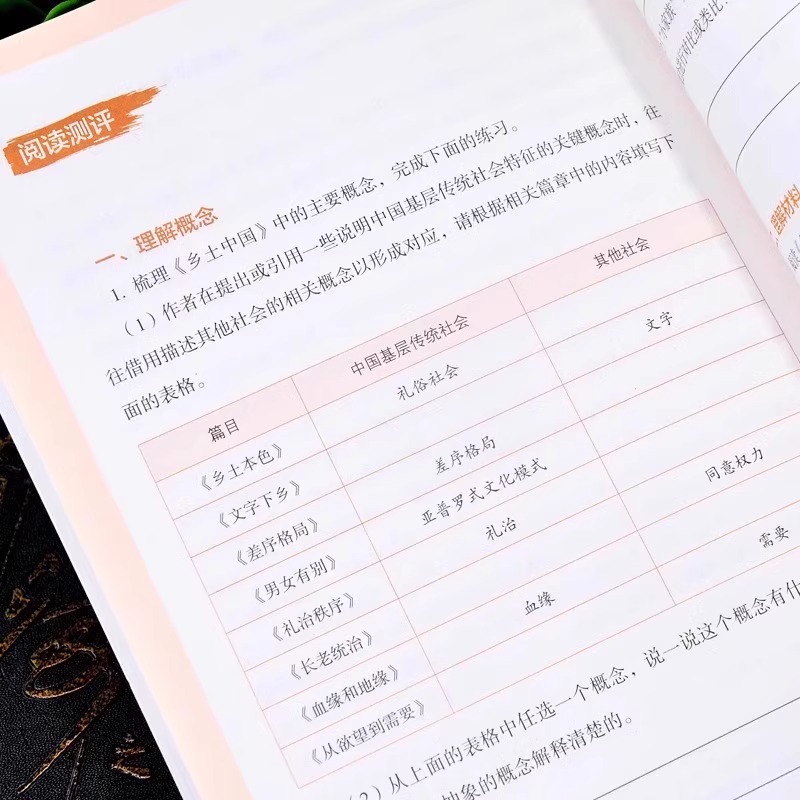 阅读测评
一、理解概念
1. 梳理《乡土中国》中的主要概念，完成下面的练习。
（1）作者在提出或引用一些说明中国基层传统社会特征的关键概念时，往
往借用描述其他社会的相关概念以形成对应，请根据相关篇章中的内容填写下
面的表格。
篇目 中国基层传统社会 其他社会
《乡土本色》 礼俗社会
《文字下乡》 文字
《差序格局》 差序格局
《男女有别》 亚普罗式文化模式
《礼治秩序》 礼治
《长老统治》 同意权力
《血缘和地缘》 血缘
《从欲望到需要》 需要
（2）从上面的表格中任选一个概念，说一说这个概念有什
抽象的概念解释清楚的。
进行对比或类比
理解材料